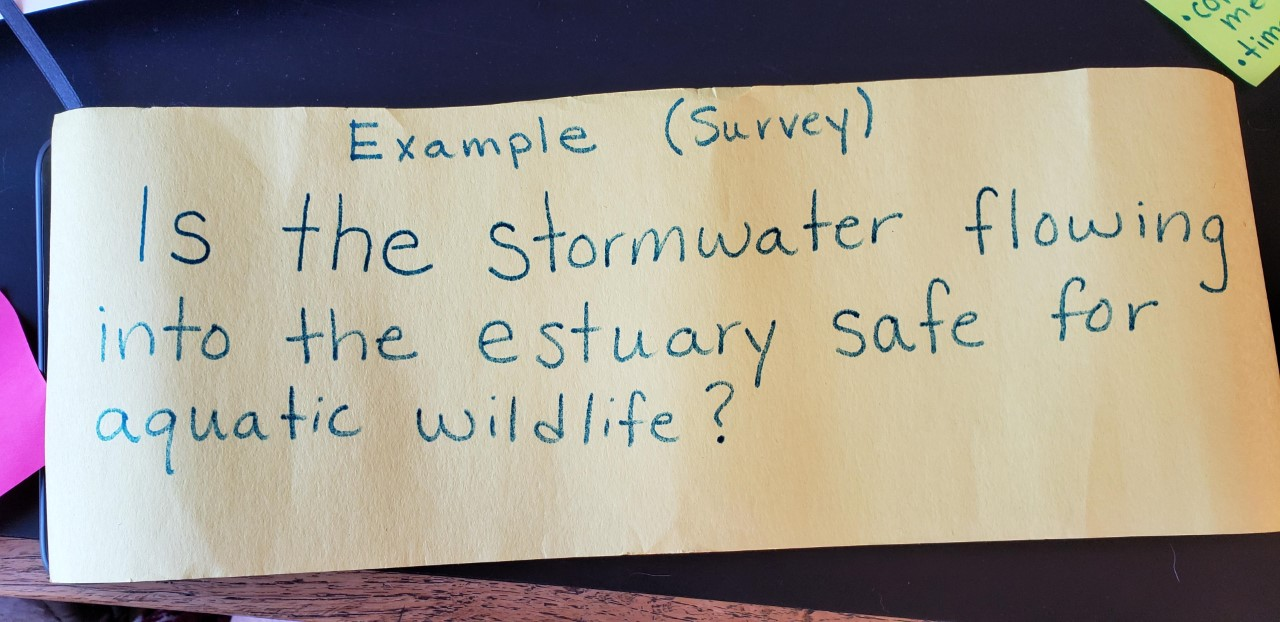 Example (Survey)
Is the stormwater flowing
into the estuary safe for
aquatic wildlife?
me